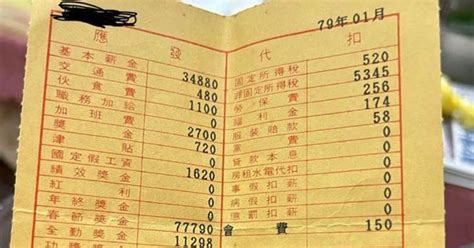 79年01月
應發
基本薪金
交通費 34880
伙食費 480
職務加給 1100
加班費 0
獎金 2700
津貼 720
國定假工資 0
績效獎金 1620
紅利 0
年終獎金 0
春節獎金 77790
全勤獎金 11298
代扣
520
固定所得稅 5345
非固定所得稅 256
勞保費 174
福利金 58
服裝賠款 0
黨費 0
貸款本息 0
房租水電代扣 0
事假扣薪 0
病假扣薪 0
懲罰扣薪 0
會費 150